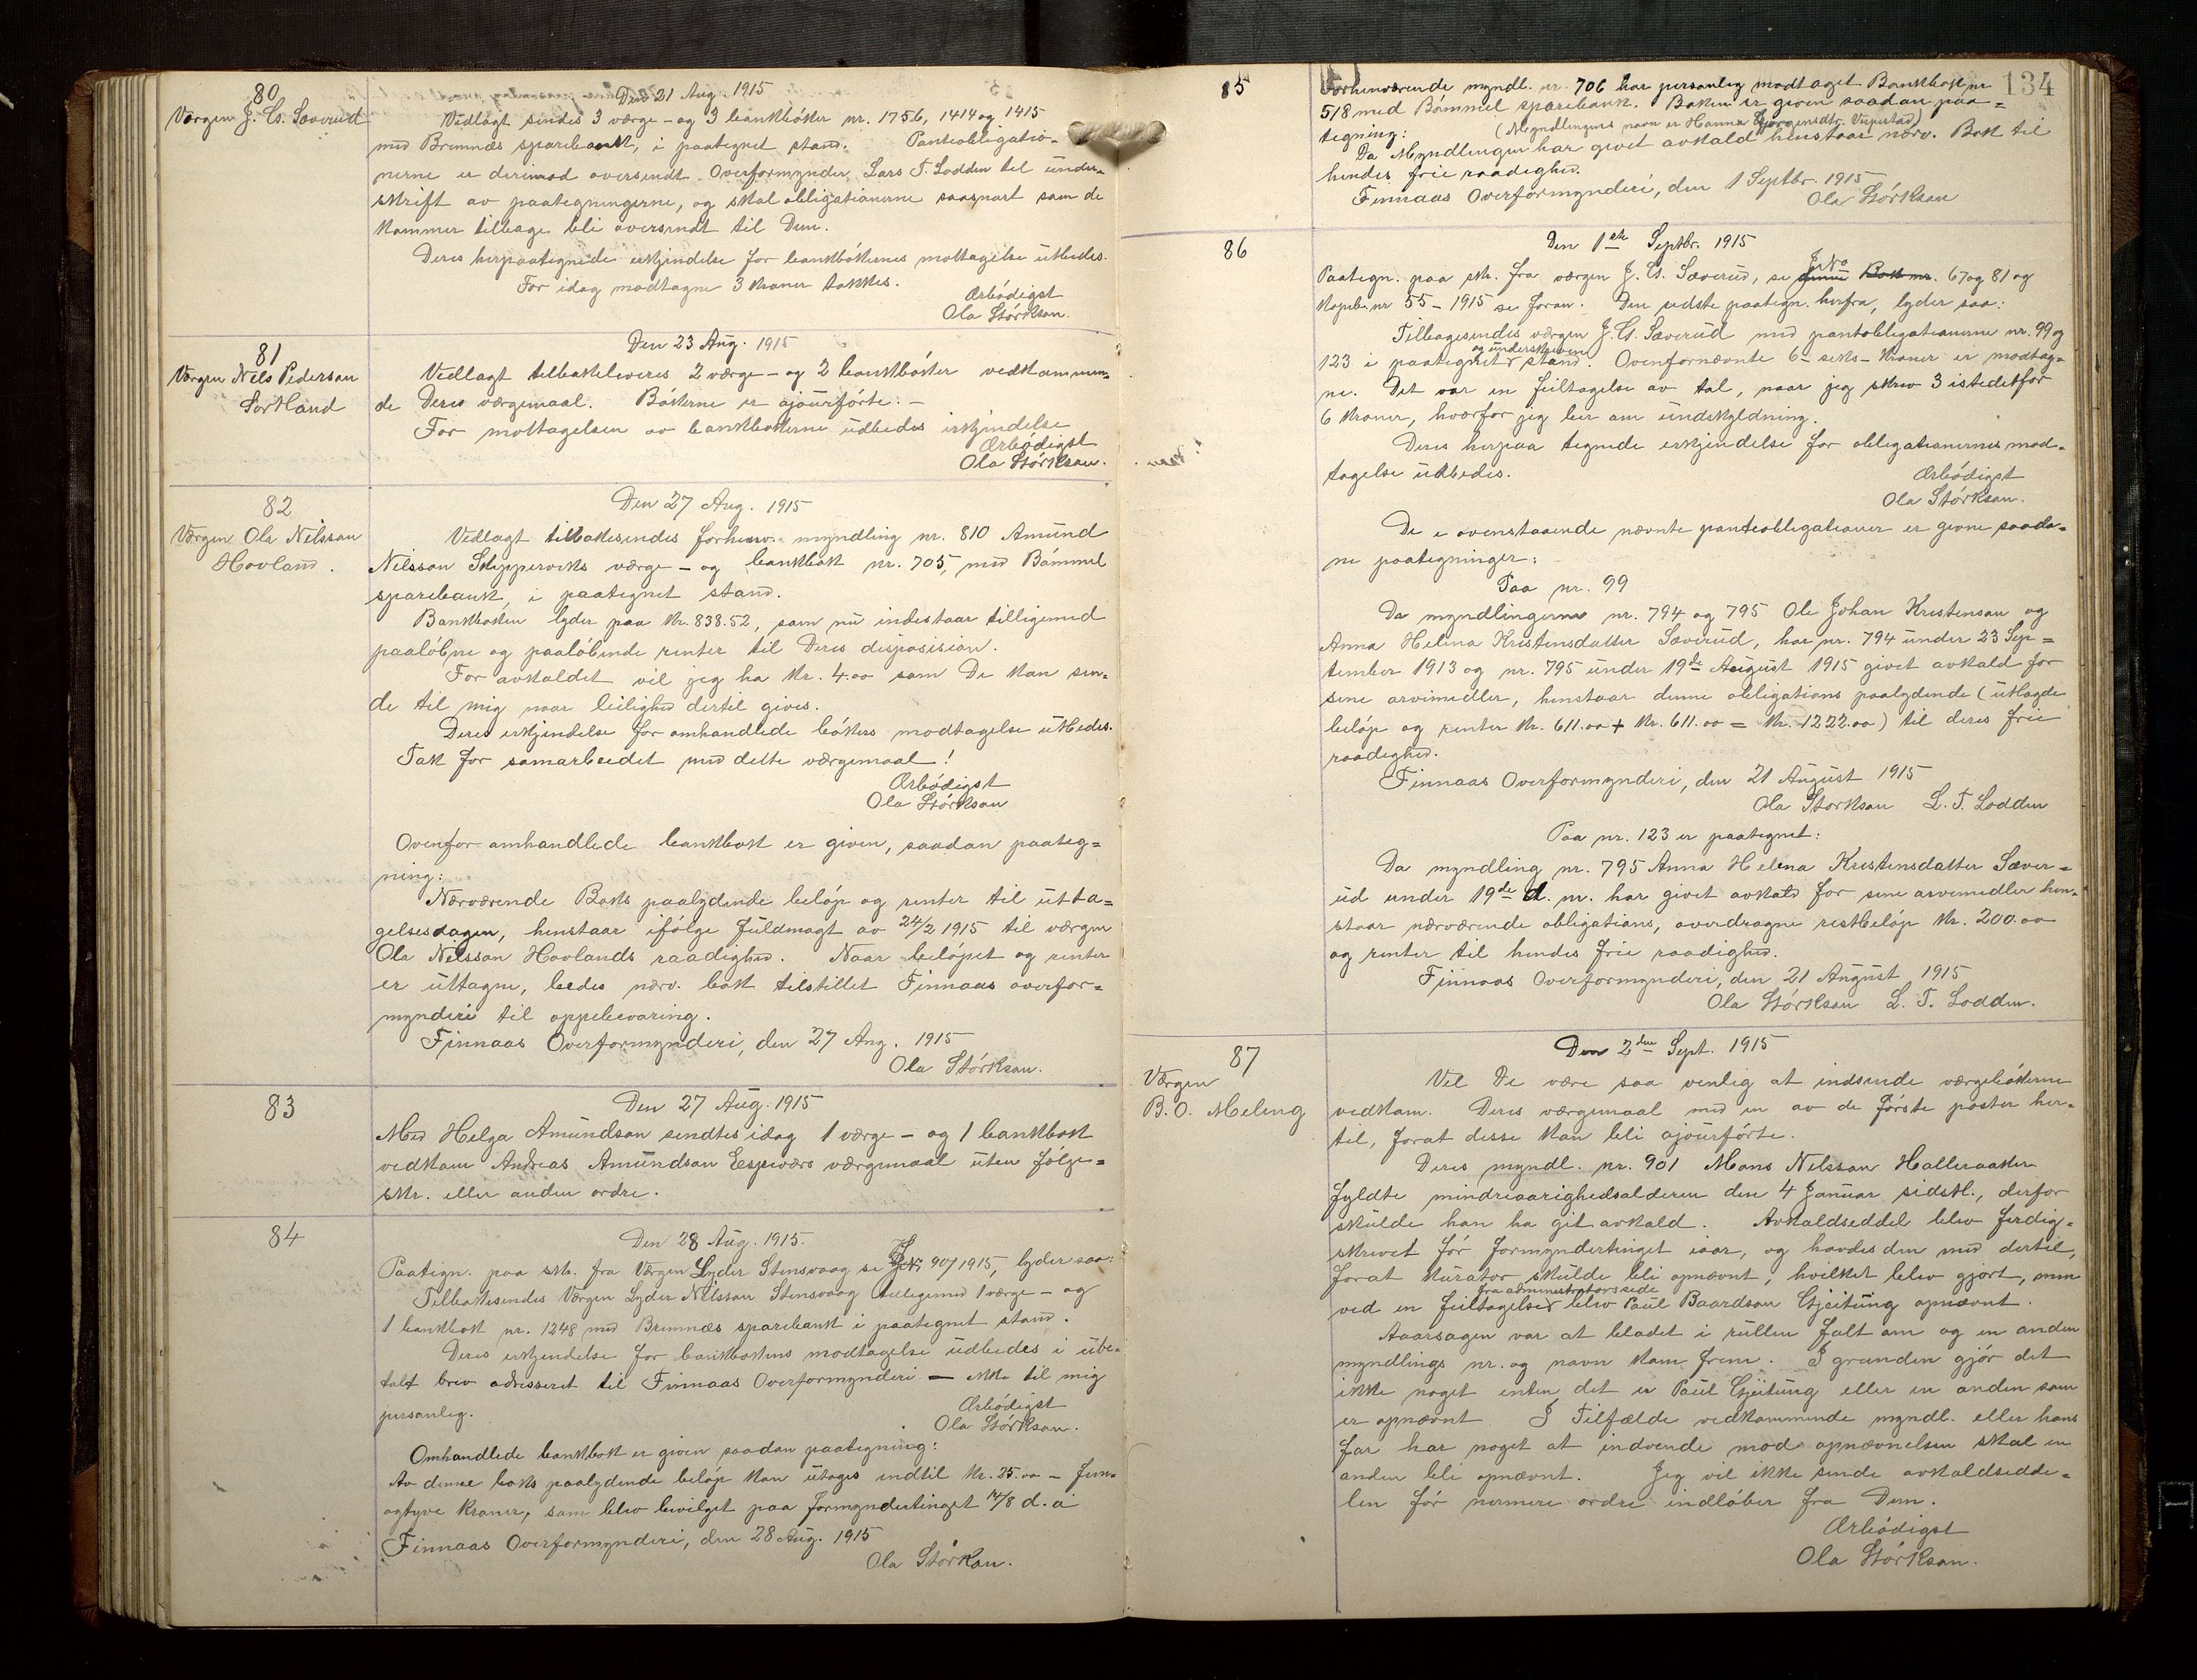 80
Værgen J. G. Sæverud
Den 21 Aug. 1915
Vedlagt sendes 3 værge- og 3 bankbøker nr. 1756, 1414 og 1415
med Bremnæs sparebank, i paategnet stand. Panteobligatio-
nerne er derimod oversendt Overformynder Lars T. Lodden til under-
skrift av paategningerne, og skal obligationerne saasnart som de
kommer tilbage bli oversendt til Dem.
Deres herpaategnede erkjendelse for bankbøkernes mottagelse utbedes.
For idag modtagne 3 kroner takkes.
Ærbødigst
Ola Størkson.
81
Værgen Nils Pederson
Sortland
Den 23 Aug. 1915
Vedlagt tilbakeleveres 2 værge- og 2 bankbøker vedkommen-
de Deres værgemaal. Bøkerne er ajourførte. -
For mottagelsen av bankbøkerne udbedes erkjendelse
Ærbødigst
Ola Størkson.
82
Værgen Ola Nilsson
Hovland.
Den 27 Aug. 1915
Vedlagt tilbakesendes forhenv. myndling nr. 810 Amund
Nilsson Skipperviks værge- og bankbok nr. 705, med Bømmel
sparebank, i paategnet stand.
Bankboken lyder paa kr. 838.52, som nu indestaar tilligemed
paaløbne og paaløbende renter til Deres disposision.
For avkaldet vil jeg ha kr. 4.00 som De kan sen-
de til mig naar leilighed dertil gives.
Deres erkjendelse for omhandlede bøkers modtagelse utbedes.
Tak for samarbeidet med dette værgemaal!
Ærbødigst
Ola Størkson
Ovenfor omhandlede bankbok er given, saadan paateg=
ning:
Nærværende Boks paalydende beløp og renter til utta=
gelsesdagen, henstaar ifølge fuldmagt av 24/2 1915 til værgen
Ola Nilsson Hovlands raadighed. Naar beløpet og renter
er uttagne, bedes nærv. bok tilstillet Finnaas overfor=
mynderi til oppbevaring.
Finnaas Overformynderi, den 27 Aug. 1915
Ola Størkson.
83
Den 27 Aug. 1915
Med Helga Amundson sendtes idag 1 værge- og 1 bankbok
vedkom Andreas Amundson Espeværs værgemaal uten følge=
skr. eller anden ordre.
84
Den 28 Aug. 1915.
Paategn. paa skr. fra Værgen Lyder Stensvaag se 90/1915, lyder saa:
Tilbakesendes Værgen Lyder Nilsson Stensvaag tillegemed 1 værge- og
1 bankbok nr. 1248 med Bremnæs sparebank i paategnet stand.
Deres erkjendelse for bankbokens modtagelse udbedes i ube-
talt brev adresseret til Finnaas Overformynderi — ikke til mig
personlig.
Ærbødigst
Ola Størkson.
Omhandlede bankbok er given saadan paategning:
Av denne boks paalydende beløp kan utages indtil kr. 25.00 - fem-
ogtyve kroner, som blev bevilget paa formyndertinget 14/8 d. å
Finnaas Overformynderi, den 28 Aug. 1915
Ola Størkson.
134
85
Forhenværende myndl. nr. 706 har personlig modtaget Bankbok nr
518 med Bømmel sparebank. Boken er given saadan paa=
tegning: (Myndlingens navn er Hanna
Da Myndlingen har givet avkald henstaar nærv. Bok til
hendes frie raadighed.
Finnaas Overformynderi, den 1 Septbr. 1915
Ola Størkson
86
Den 1ste Septbr. 1915
Paategn. paa skr. fra værgen J. G. Sæverud, se J. No 67 og 81 og
Kopib. nr 55 - 1915 se foran. Den sidste paategn. herfra, lyder saa:
Tilbagesendes værgen J. G. Sæverud med pantobligationerne nr. 99 og
123 i paategnet og underskreven stand. Ovenfornævnte 6 - seks - kroner er modtag-
ne. Det var en feiltagelse av tal, naar jeg skrev 3 istedetfor
6 kroner, hvorfor jeg ber om undskyldning.
Deres herpaa tegnede erkjendelse for obligationernes mod-
tagelse utbedes.
Ærbødigst
Ola Størkson.
De i ovenstaaende nævnte panteobligationer er givne saada-
ne paategninger:
Paa nr. 99
Da myndlingerne nr. 794 og 795 Ole Johan Kristenson og
Anna Helina Kristensdatter Sæverud, har nr. 794 under 23 Sep=
tember 1913 og nr. 795 under 19de August 1915 givet avkald for
sine arvimedler, henstaar denne obligations paalydende (utlagde
beløp og renter kr. 611.00 + kr. 611.00 = kr. 1222.00) til deres frie
raadighed.
Finnaas Overformynderi, den 21 August 1915
Ola Størkson L. T. Lodden
Paa nr. 123 er paategnet:
Da myndling nr. 795 Anna Helena Kristensdatter Sæver=
ud under 19de d. m. har givet avkald for sine arvemedler hen-
staar nærværende obligations, overdragne restbeløp kr. 200.00
og renter til hendes frie raadighed.
Finnaas Overformynderi, den 21 August 1915
Ola Størkson L. T. Lodden.
87
Værgen
B. O. Meling
Den 2den Sept. 1915
Vil De være saa venlig at indsende værgebøkerne
vedkom. Deres værgemaal med en av de første poster her-
til, forat desse kan bli ajourførte.
Deres myndl. nr. 901 Mons Nilsson Halleraaker
fyldte mindreaarighedsalderen den 4 Januar sidstl., derfor
skulde han ha git avkald. Avkaldseddel blev ferdig-
skrevet før formyndertinget iaar, og havdes den med dertil,
forat kurator skulde bli opnævnt, hvilket blev gjort, men
ved en feiltagelse fra administrators side blev Paul Baardson Gjeitung opnævnt.
Aaarsagen var at bladet i rullen falt om og en anden
myndlings nr. og navn kom frem. I grunden gjør det
ikke noget enten det er Paul Gjeitung eller en anden som
er opnævnt. I Tilfælde vedkommende myndl. eller hans
far har noget at indvende mod opnævnelsen skal en
anden bli opnævnt. Jeg vil ikke sende avkaldsedde-
len før nermere ordre indløber fra Dem.
Ærbødigst
Ola Størkson.